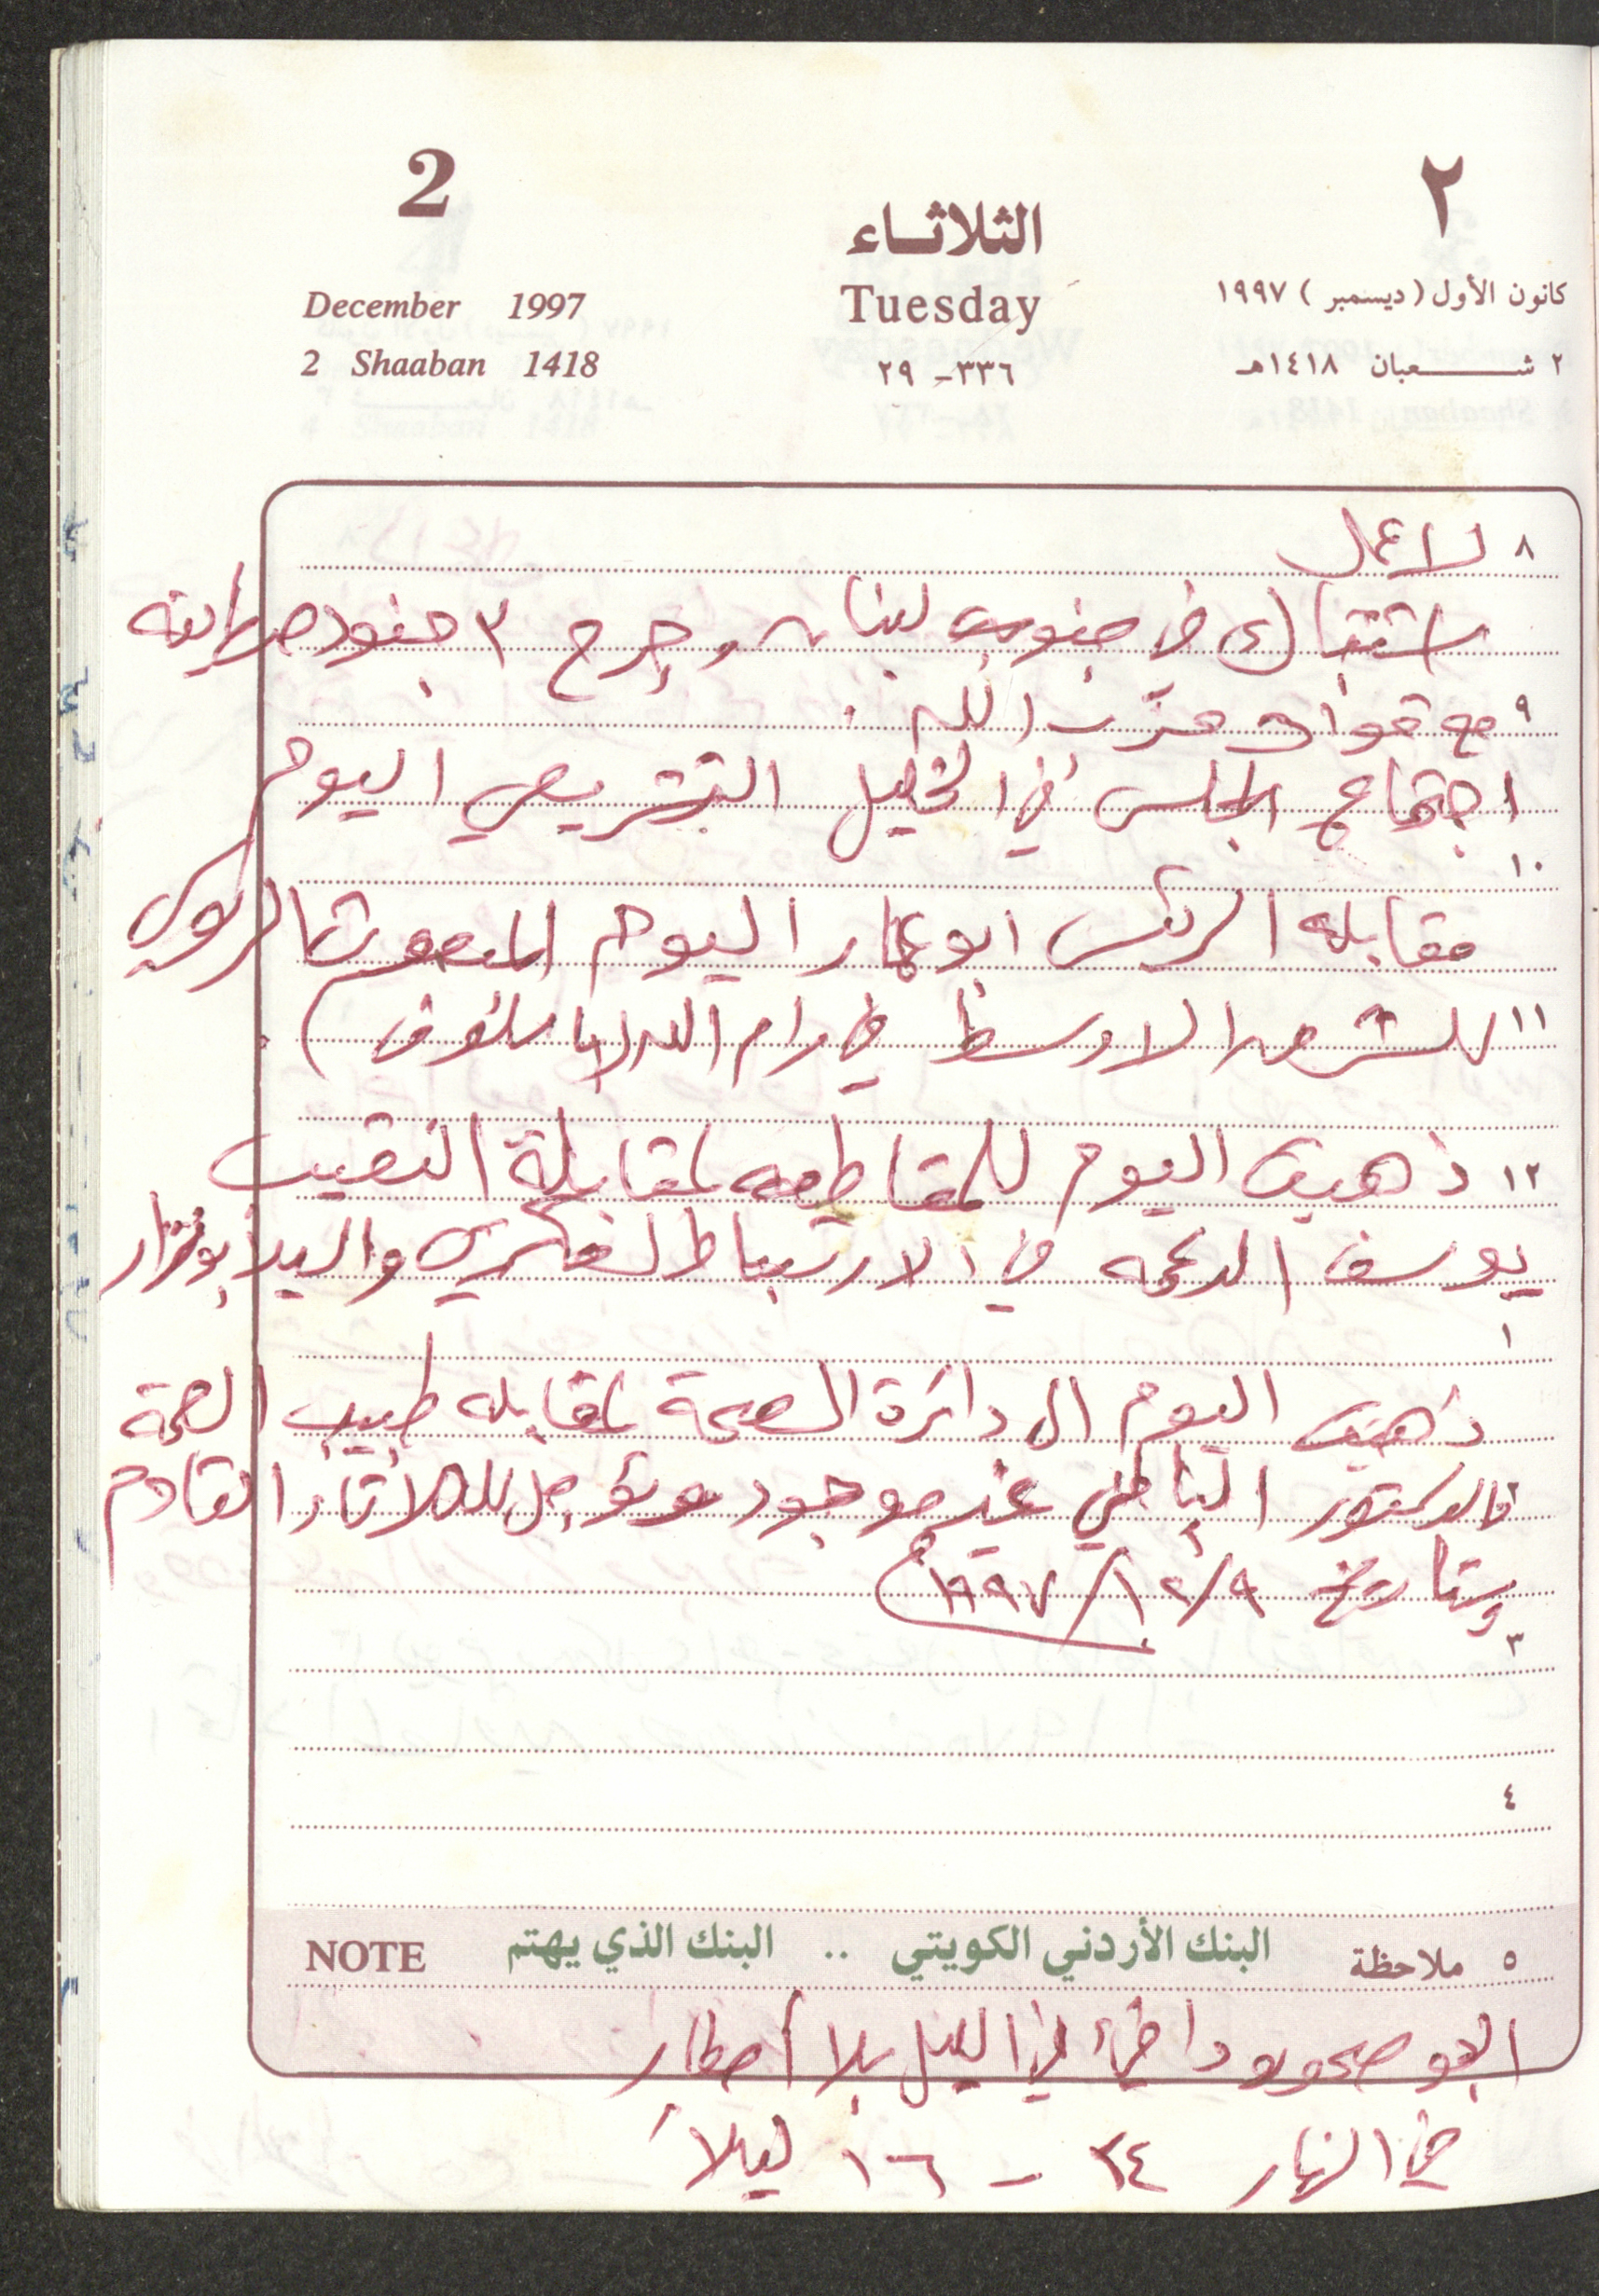 2
٢
الثلاثاء
Tuesday
٣٣٦ - ٢٩
December 1997
2 Shaaban 1418
كانون الأول (ديسمبر) ١٩٩٧
٢ شعبان ١٤١٨هـ
٨ لا عمل
اشتباك في جنوب لبنان وجرح ٣ جنود
٩ مع قوات حزب الله .
اجتماع المجلس في الخليل التشريعي اليوم
١٠
مقابله الرئيس ابو عمار اليوم المبعوث
١١ للشرق الاوسط في رام الله
١٢ ذهبت اليوم للمقاطعه لمقابلة النقيب
يوسف في الارتباط العسكري والسيد ابو نزار
١
ذهبت اليوم الى دائرة الصحة لمقابله طبيب الصحة
فالدكتور الباطني غير موجود وتؤجل للثلاثاء القادم
وبتاريخ ٩/١٢/١٩٩٧م
٣
٤
٥ ملاحظة البنك الأردني الكويتي .. البنك الذي يهتم NOTE
الجو صحو ودافئ في الليل بلا أمطار
في النهار ٢٤ - ١٦ ليلاً